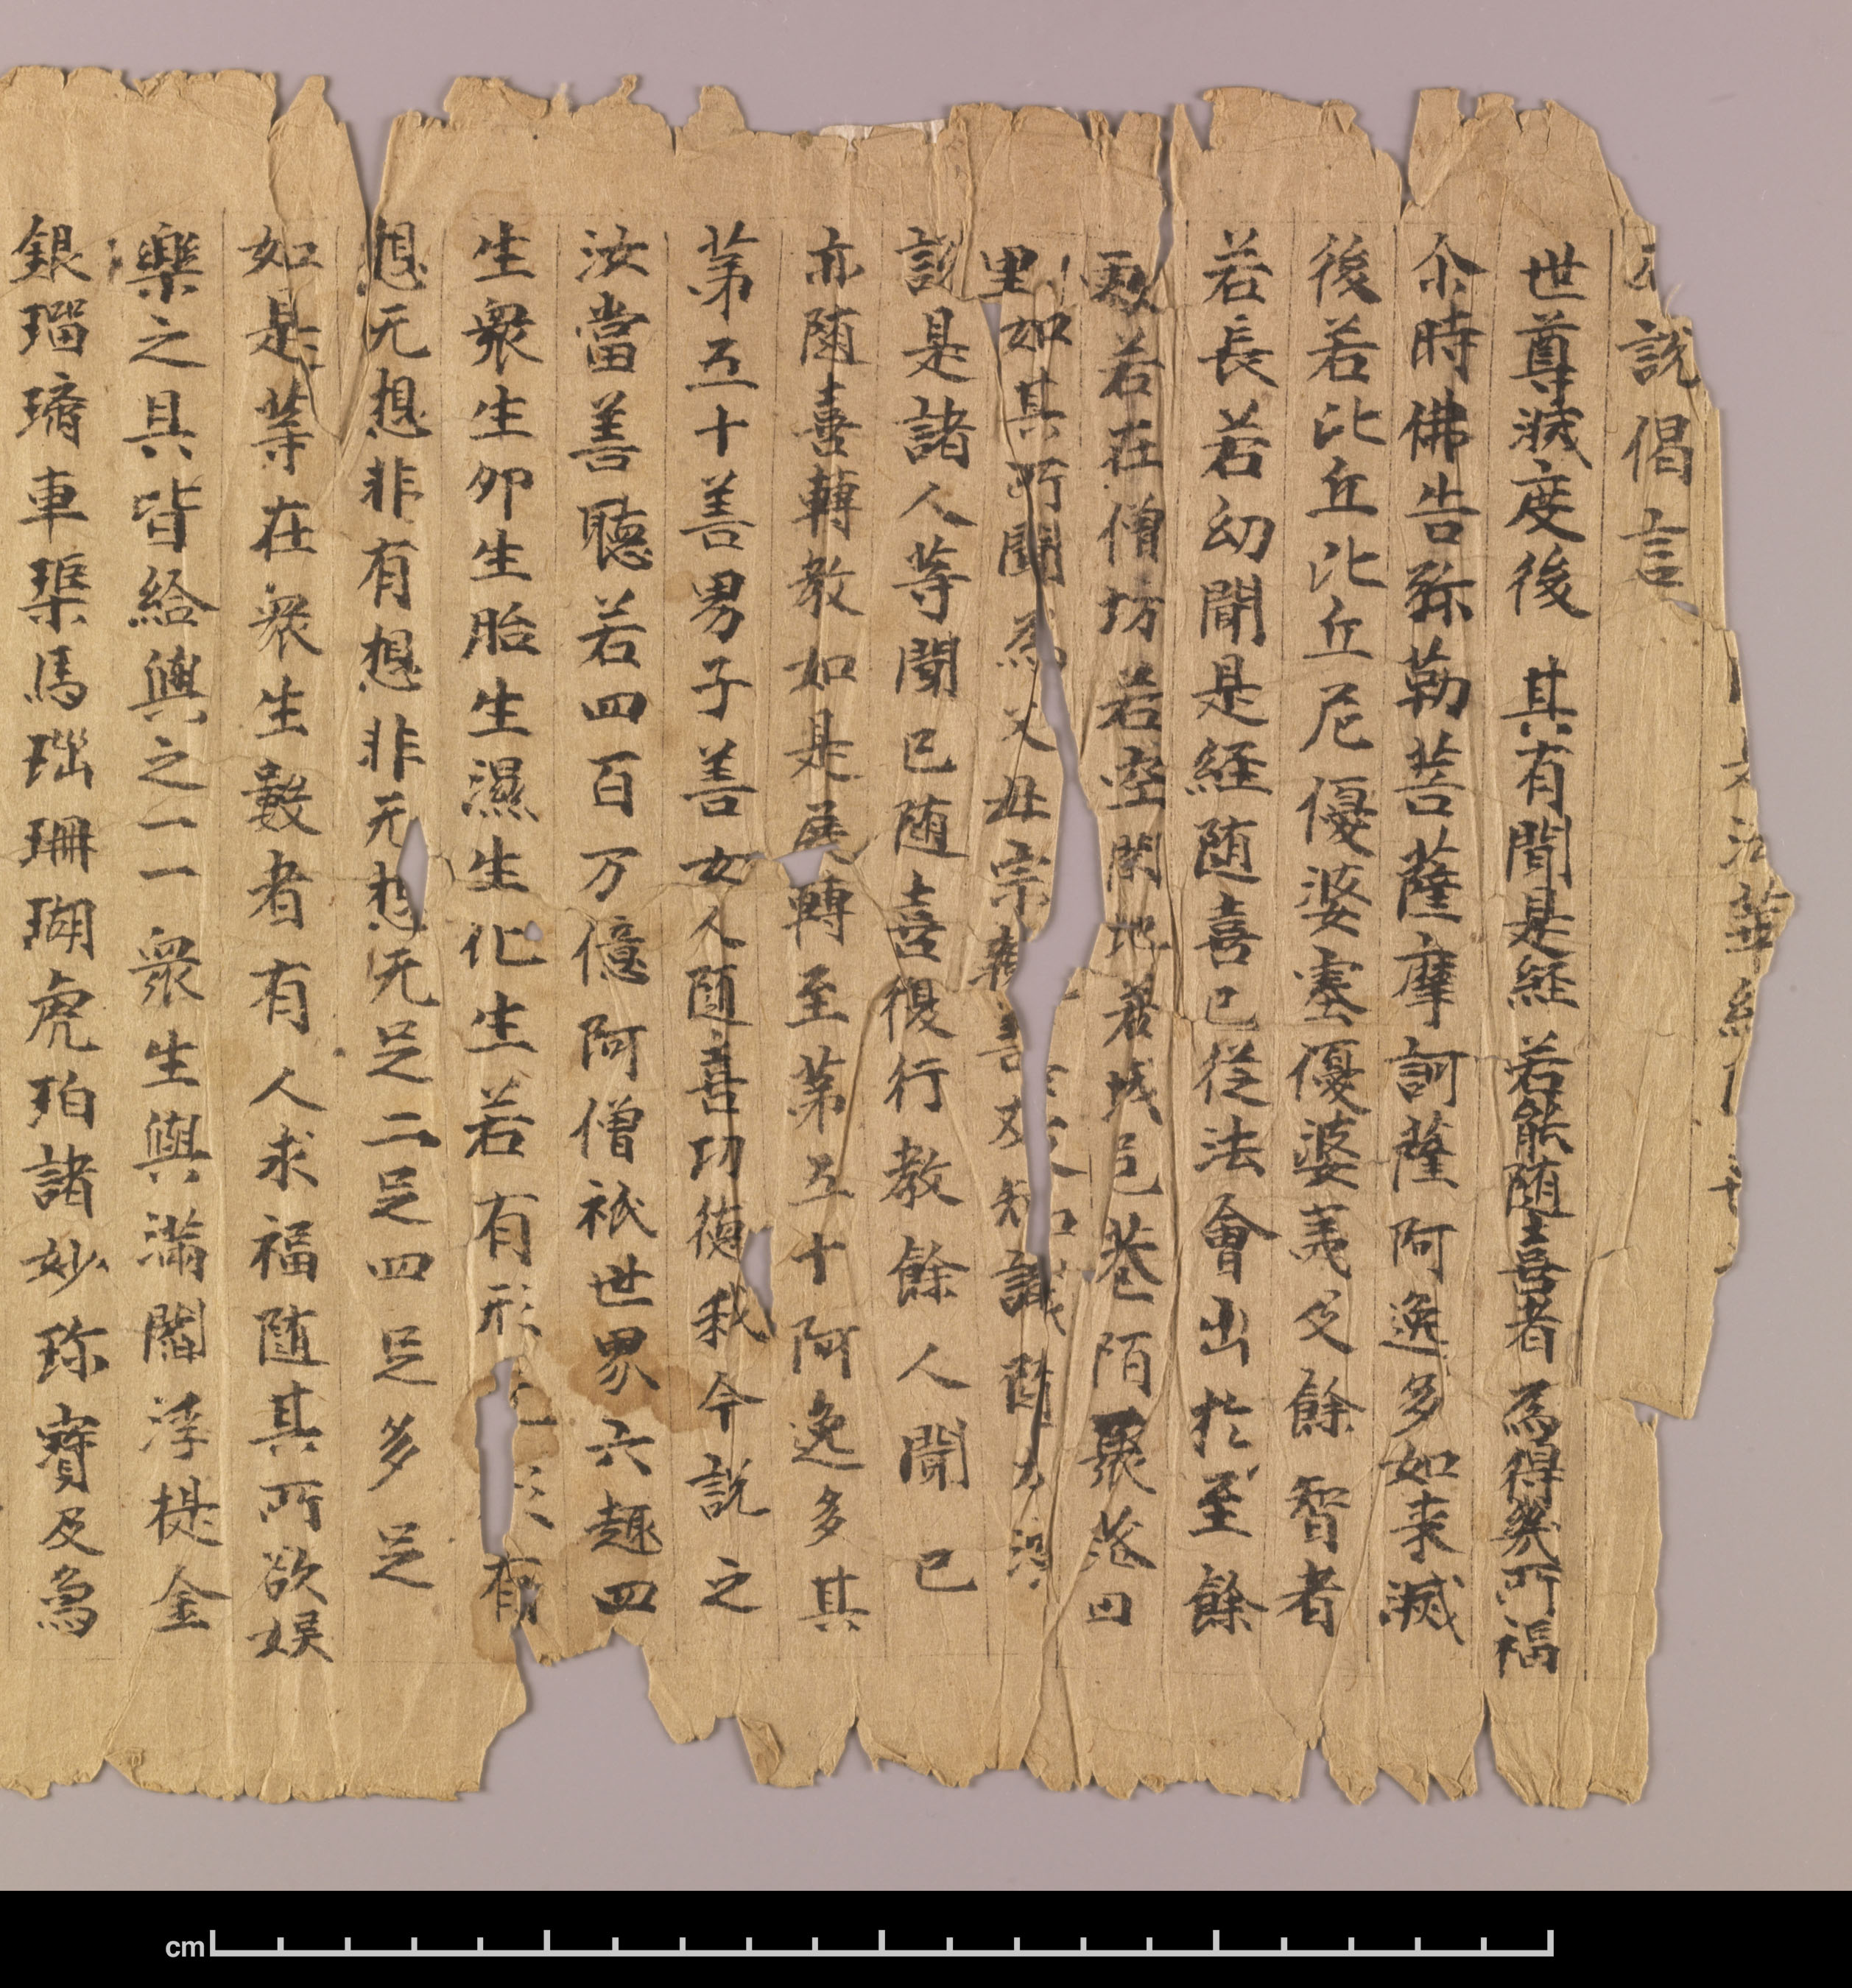 妙法蓮華經
而說偈言
世尊滅度後　其有聞是経　若能随喜者　為得㡬所福
尒時佛告弥勒菩薩摩訶薩阿逸多如来滅
後若比丘比丘尼優婆塞優婆夷及餘智者
若長若幼聞是経随喜已従法會出扵至餘
䖏若在僧坊若空閑地若城邑巷陌聚落田
里如其所聞為父母宗親善友知識随力演
說是諸人等聞已随喜復行教餘人聞已
亦随喜轉教如是展轉至苐五十阿逸多其
苐五十善男子善女人随喜功德我今説之
汝當善聽若四百万億阿僧祇世界六趣四
生衆生卵生胎生濕生化生若有形无形有
想无想非有想非无想无足二足四足多足
如是等在衆生數者有人求福随其所欲娯
樂之具皆給與之一一衆生與滿閻浮提金
銀瑠璃車𤦲馬瑙珊瑚虎珀諸妙珎寳及烏